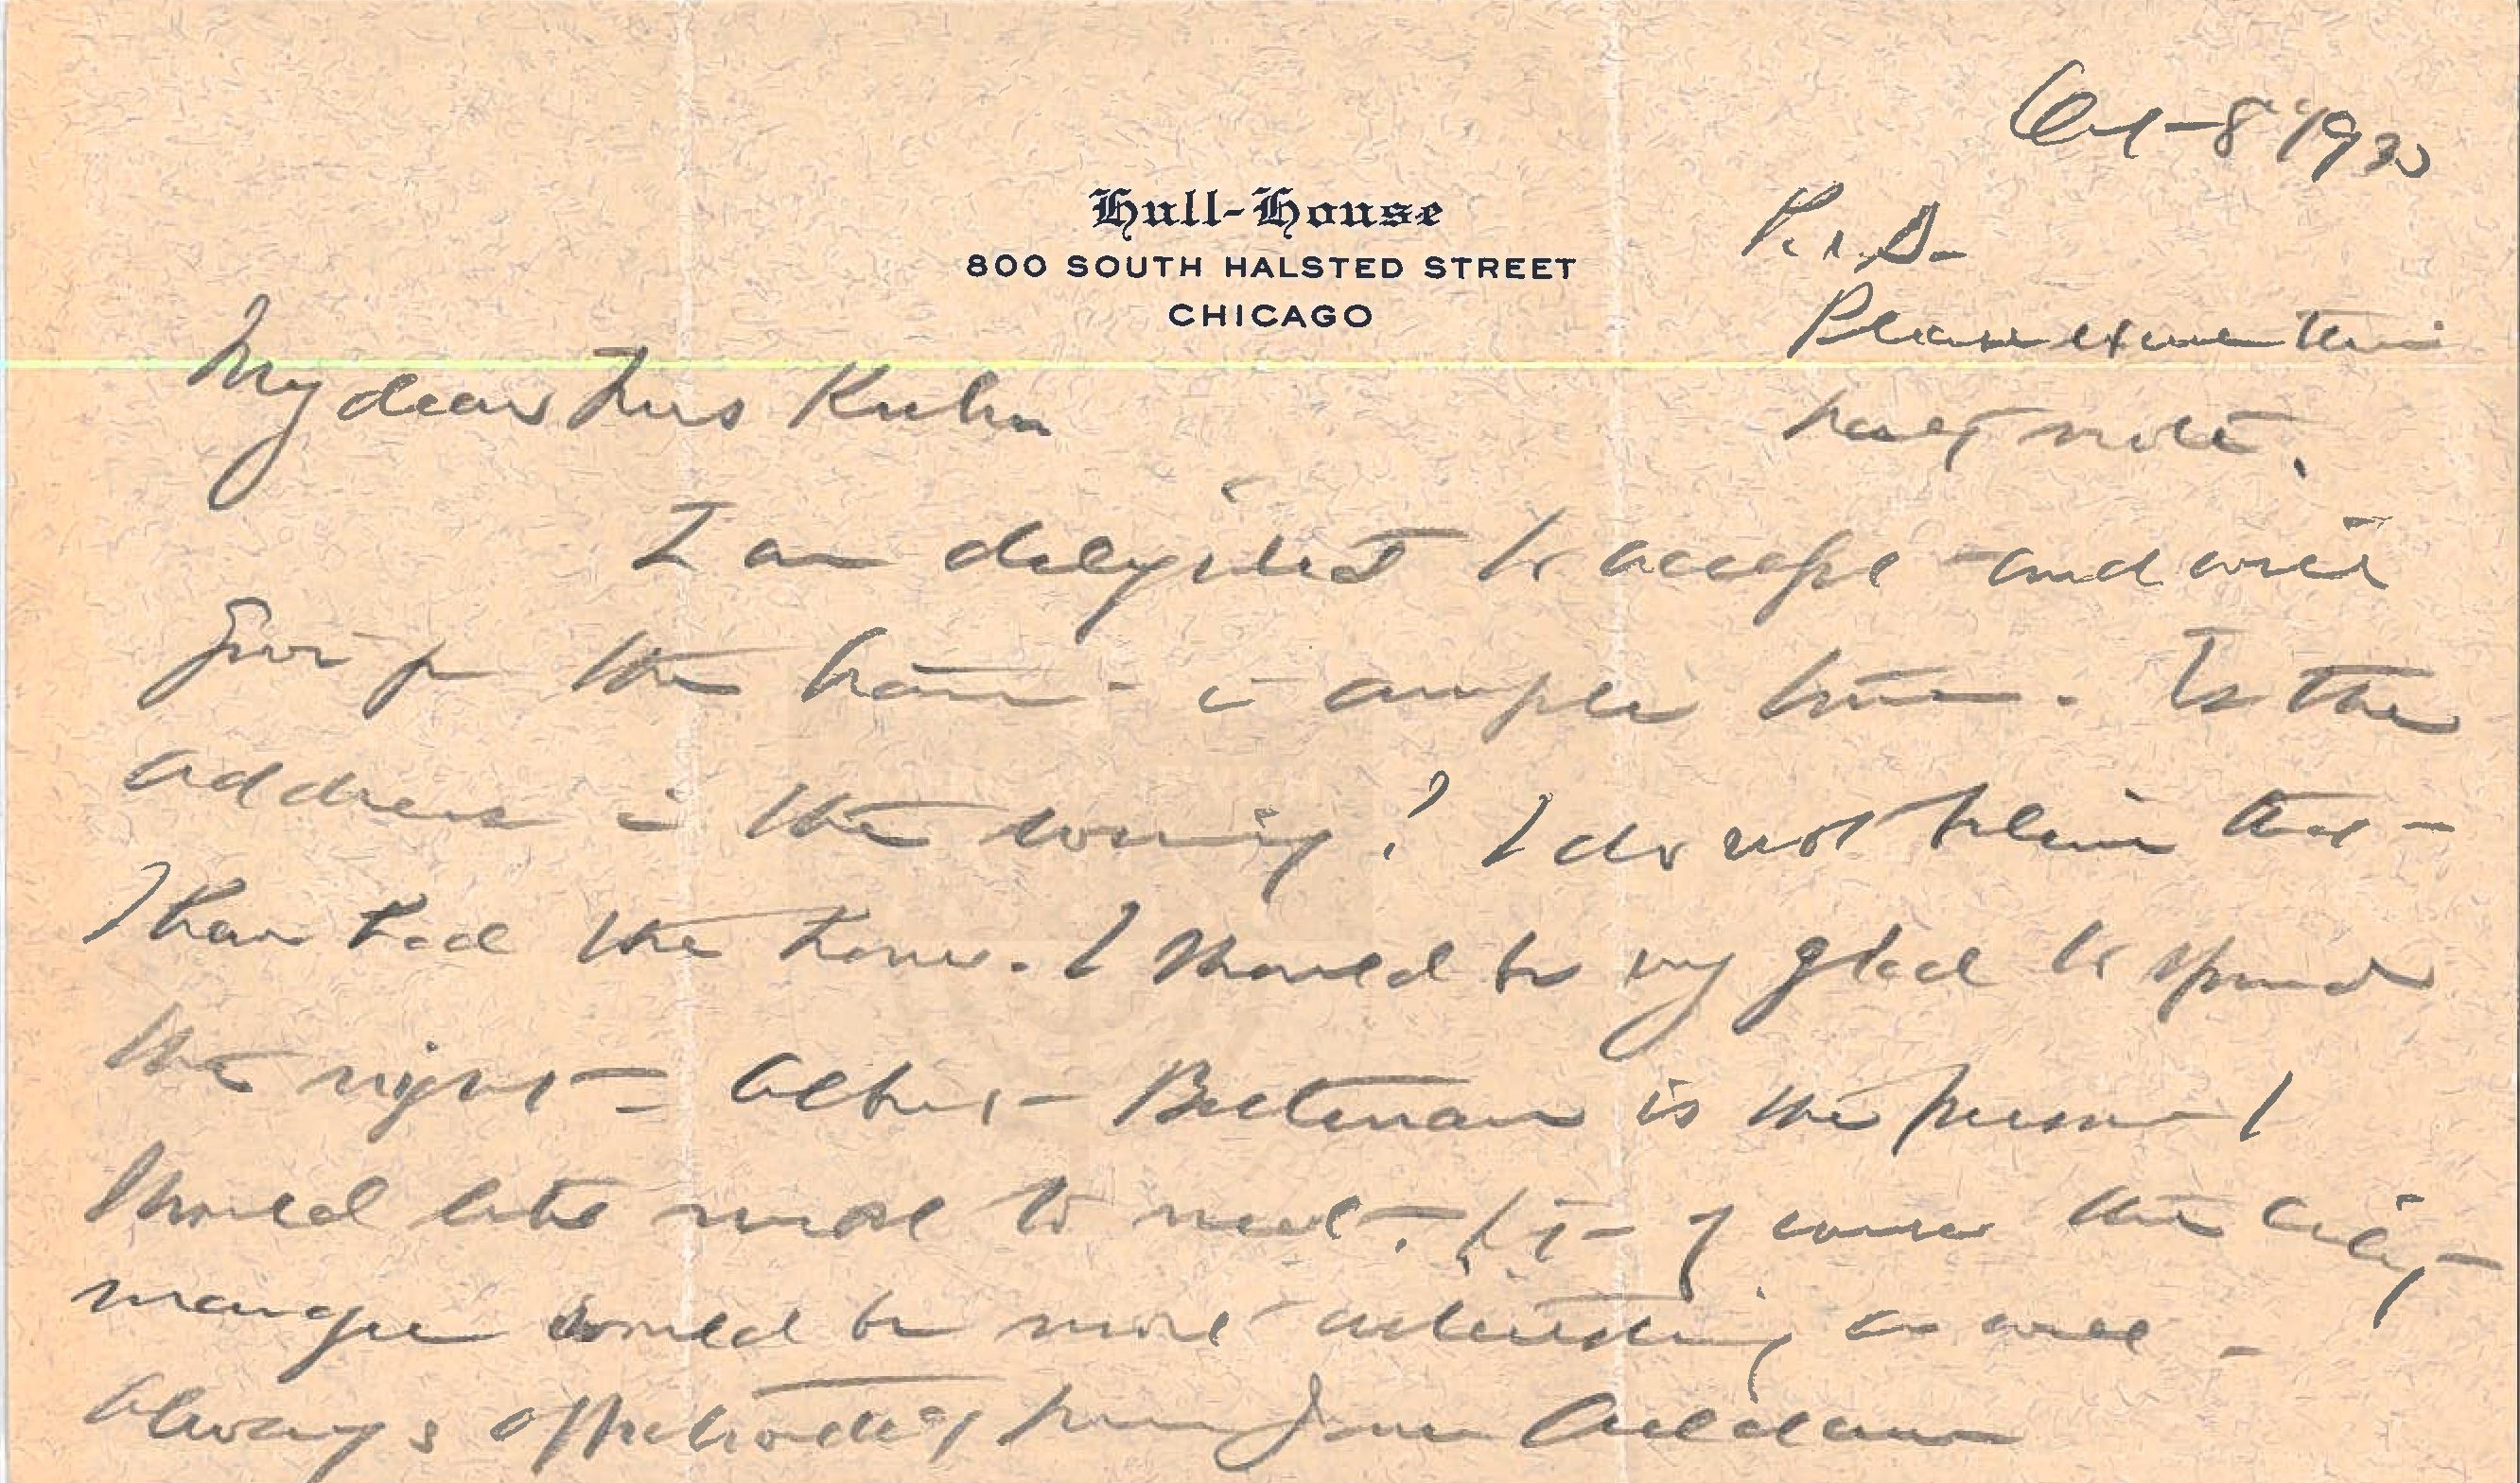 Oct-8" 1930
Hull-House
800 SOUTH HALSTED STREET
CHICAGO
P.S.
Please excuse this
hasty note.
My dear Mrs Kuhn
I am delighted to accept - and will
give you the train in ample time. Is the
address in the evening? I do not believe that -
I have had the honor. I should be very glad to spend
the night - Albert Bettman is the person I
should like most to meet.  of course the City
manager would be most interesting as well -
Always affectionately yours Jane Addams